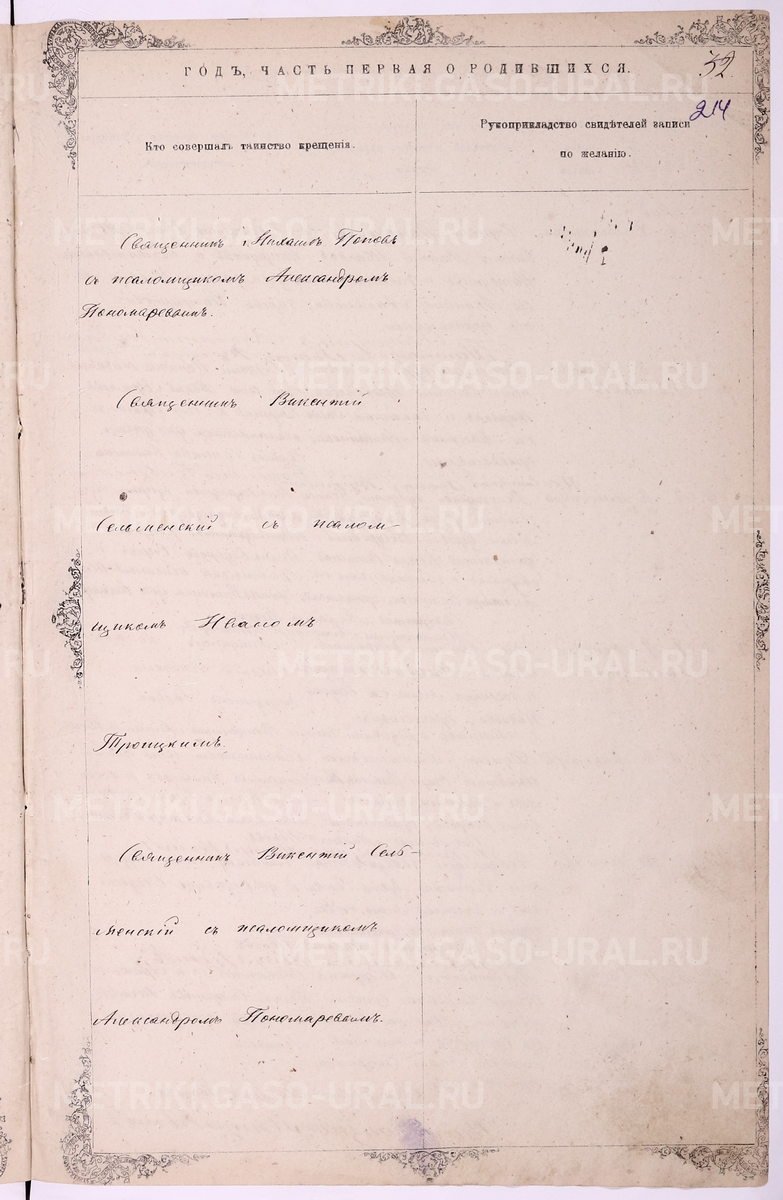 ГОДЪ, ЧАСТЬ ПЕРВАЯ О РОДИВШИХСЯ.
32
214
Кто совершалъ таинство крещенія.
Рукоприкладство свидѣтелей записи
по желанію.
Священникъ Михаилъ Поповъ
съ псаломщикомъ Александромъ
Пономаревымъ.
Священникъ Викентій
Сельменскій съ псалом-
щикомъ Иваномъ
Троицкимъ.
Священникъ Викентій Сель-
менскій съ псаломщикомъ
Александромъ Пономаревымъ.
METRIKI.GASO-URAL.RU